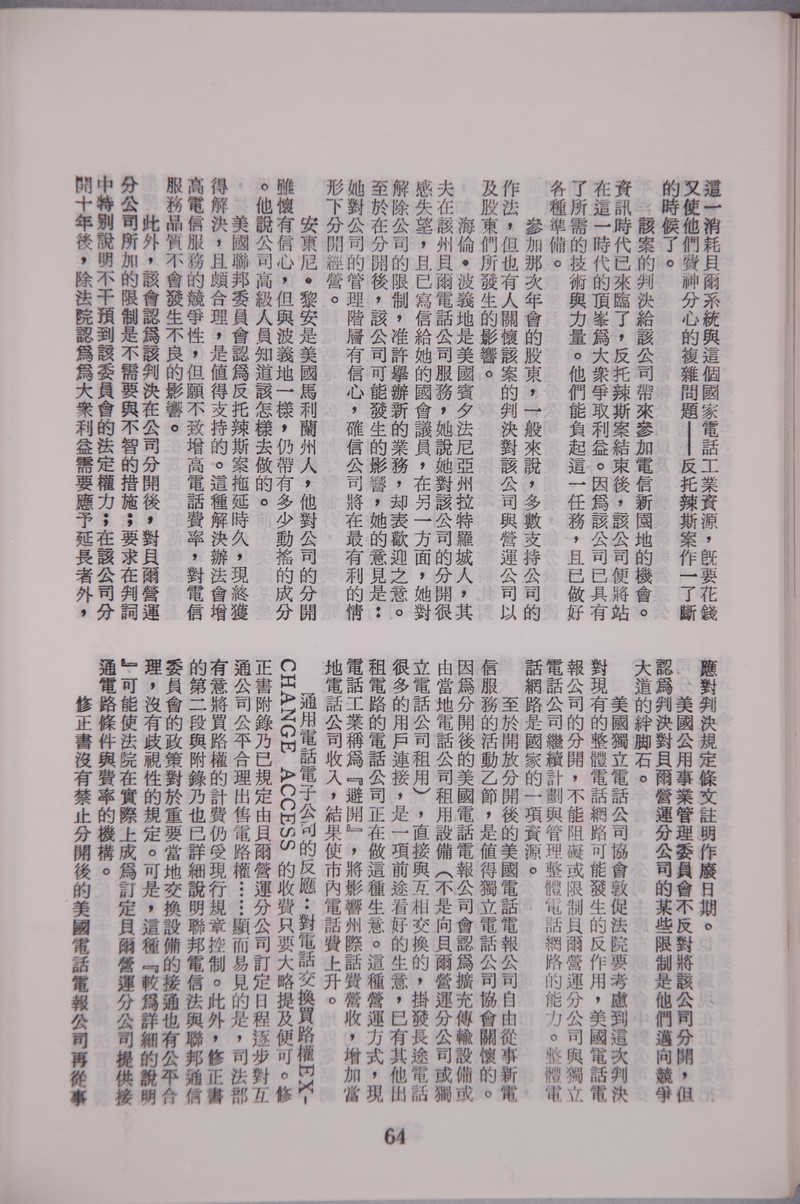 這一消耗貝爾系統與這個國家電話工業資源，既要花錢
又使他們費神分心的複雜問題——反托辣斯案作一了斷
的時候了。
該案的判決給該公司帶來參加電信新園地的機會。
資訊時代已來臨了，反托辣斯案結束後，該公司便將站
在這一時代的頂峯爲大衆爭取利益。因爲該公司已具有
了所需的技術與力量。他們能負起這一任務，且已做好
各種準備。
參加那次年會的股東，一般來說，多數支持公司的
作法，但也有人關懷該案的判決對該公司與營運公司以
及股東們所發生的影響。
海倫。波義地是美國賓夕法尼亞州拉特羅城人，其
夫在該州貝爾電話公司服務，她說她對該公司的分開很
感失望，且已寫信給她的國會議員，在另一方面，她對
解除公司的限制，准許舉辦新的業務，却表歡迎之意。
至於在分開後，該公司可能發生的影響，她的意見是：
她對公司的管理階層有信心，確信公司將在最有利的情
形下分開經營。
安東尼。黎安是美國馬利蘭州人，他對公司的分開
雖懷有信心，但與波義地一樣，仍帶有多少動搖的成分
。他說公司高級人員知道該怎樣去做的。
美國聯邦委員會認爲反托辣斯案拖延時久，現終獲
得解決，且頗合理，是值得支持的。這種解決辦法會增
高電信服務的競爭性，但願不致增高電話費率，對電信
服務品質不會發生不良的影響。
此外，該會認爲該判決在公司分開後，對貝爾營運
分公司所加的限制是不需要與不智的措施；要求在判詞
中特別說明不干預到該委員會的法定權力；在該公司分
開十年後，除法院認爲爲大衆利益需要應予延長者外，
應對判決規定條文註明作廢日期。
美國公用事業管理委員會不反對將該公司分開，但
認爲判決對貝爾營運分公司的某些限制是他們邁向競爭
大道的絆脚石。
美國獨立電話公司協會敦促法院要考慮到這次判決
對現有的整體電話網路可能發生的反作用，美國電話電
報公司的分開，不能阻礙或限制貝爾營運分公司與獨立
電話公司繼續計劃與管理整體電話網路的能力。整體電
話網路是國家的一項資源。
至於開放分開後的美國電話電報公司自由從事新電
信服務的活動乙節，是值得獨立電話公司協會關懷的。
因爲分開後的美國電話電報公司會認爲擴充傳輸設備或
由當地電話公司租用設備（不是向貝爾營運分公司或獨
立電話公司租用），直接與互相交換的，掛發長途電話
很多的用戶連接，是一項前途看好的生意，已有其他出
租電路的電話公司正在做這種生意。這種營運方式，現
電話工業稱爲『避開』，將影響州際話費營收，增加當
地電話公司收入，結果使市內電話費上升。
通用電話電子公司的反應：對電話交換買路權EX-
CHANGE ACCESS 的收費只要大略提及便可。修
正書附錄乃已規定由貝爾營運分公司訂定日程逐步對互
通公司公平合理出售電路權……顯而易見的是，司法部
有意將買路權的計費仍受現行規章控制。此外，修正書
的第二段與附錄乃也已詳細說明聯邦電信法與聯邦通信
委員會的政策對於重要當地交換設備的接通也有公平合
理，沒有歧視性的規定。可是，這種『較爲詳細的說明
』可能使法院在實際上成爲訂定貝爾營運分公司提供接
通電路條件與費率的機構。
修正書沒有禁止分開後的美國電話電報公司再從事
64